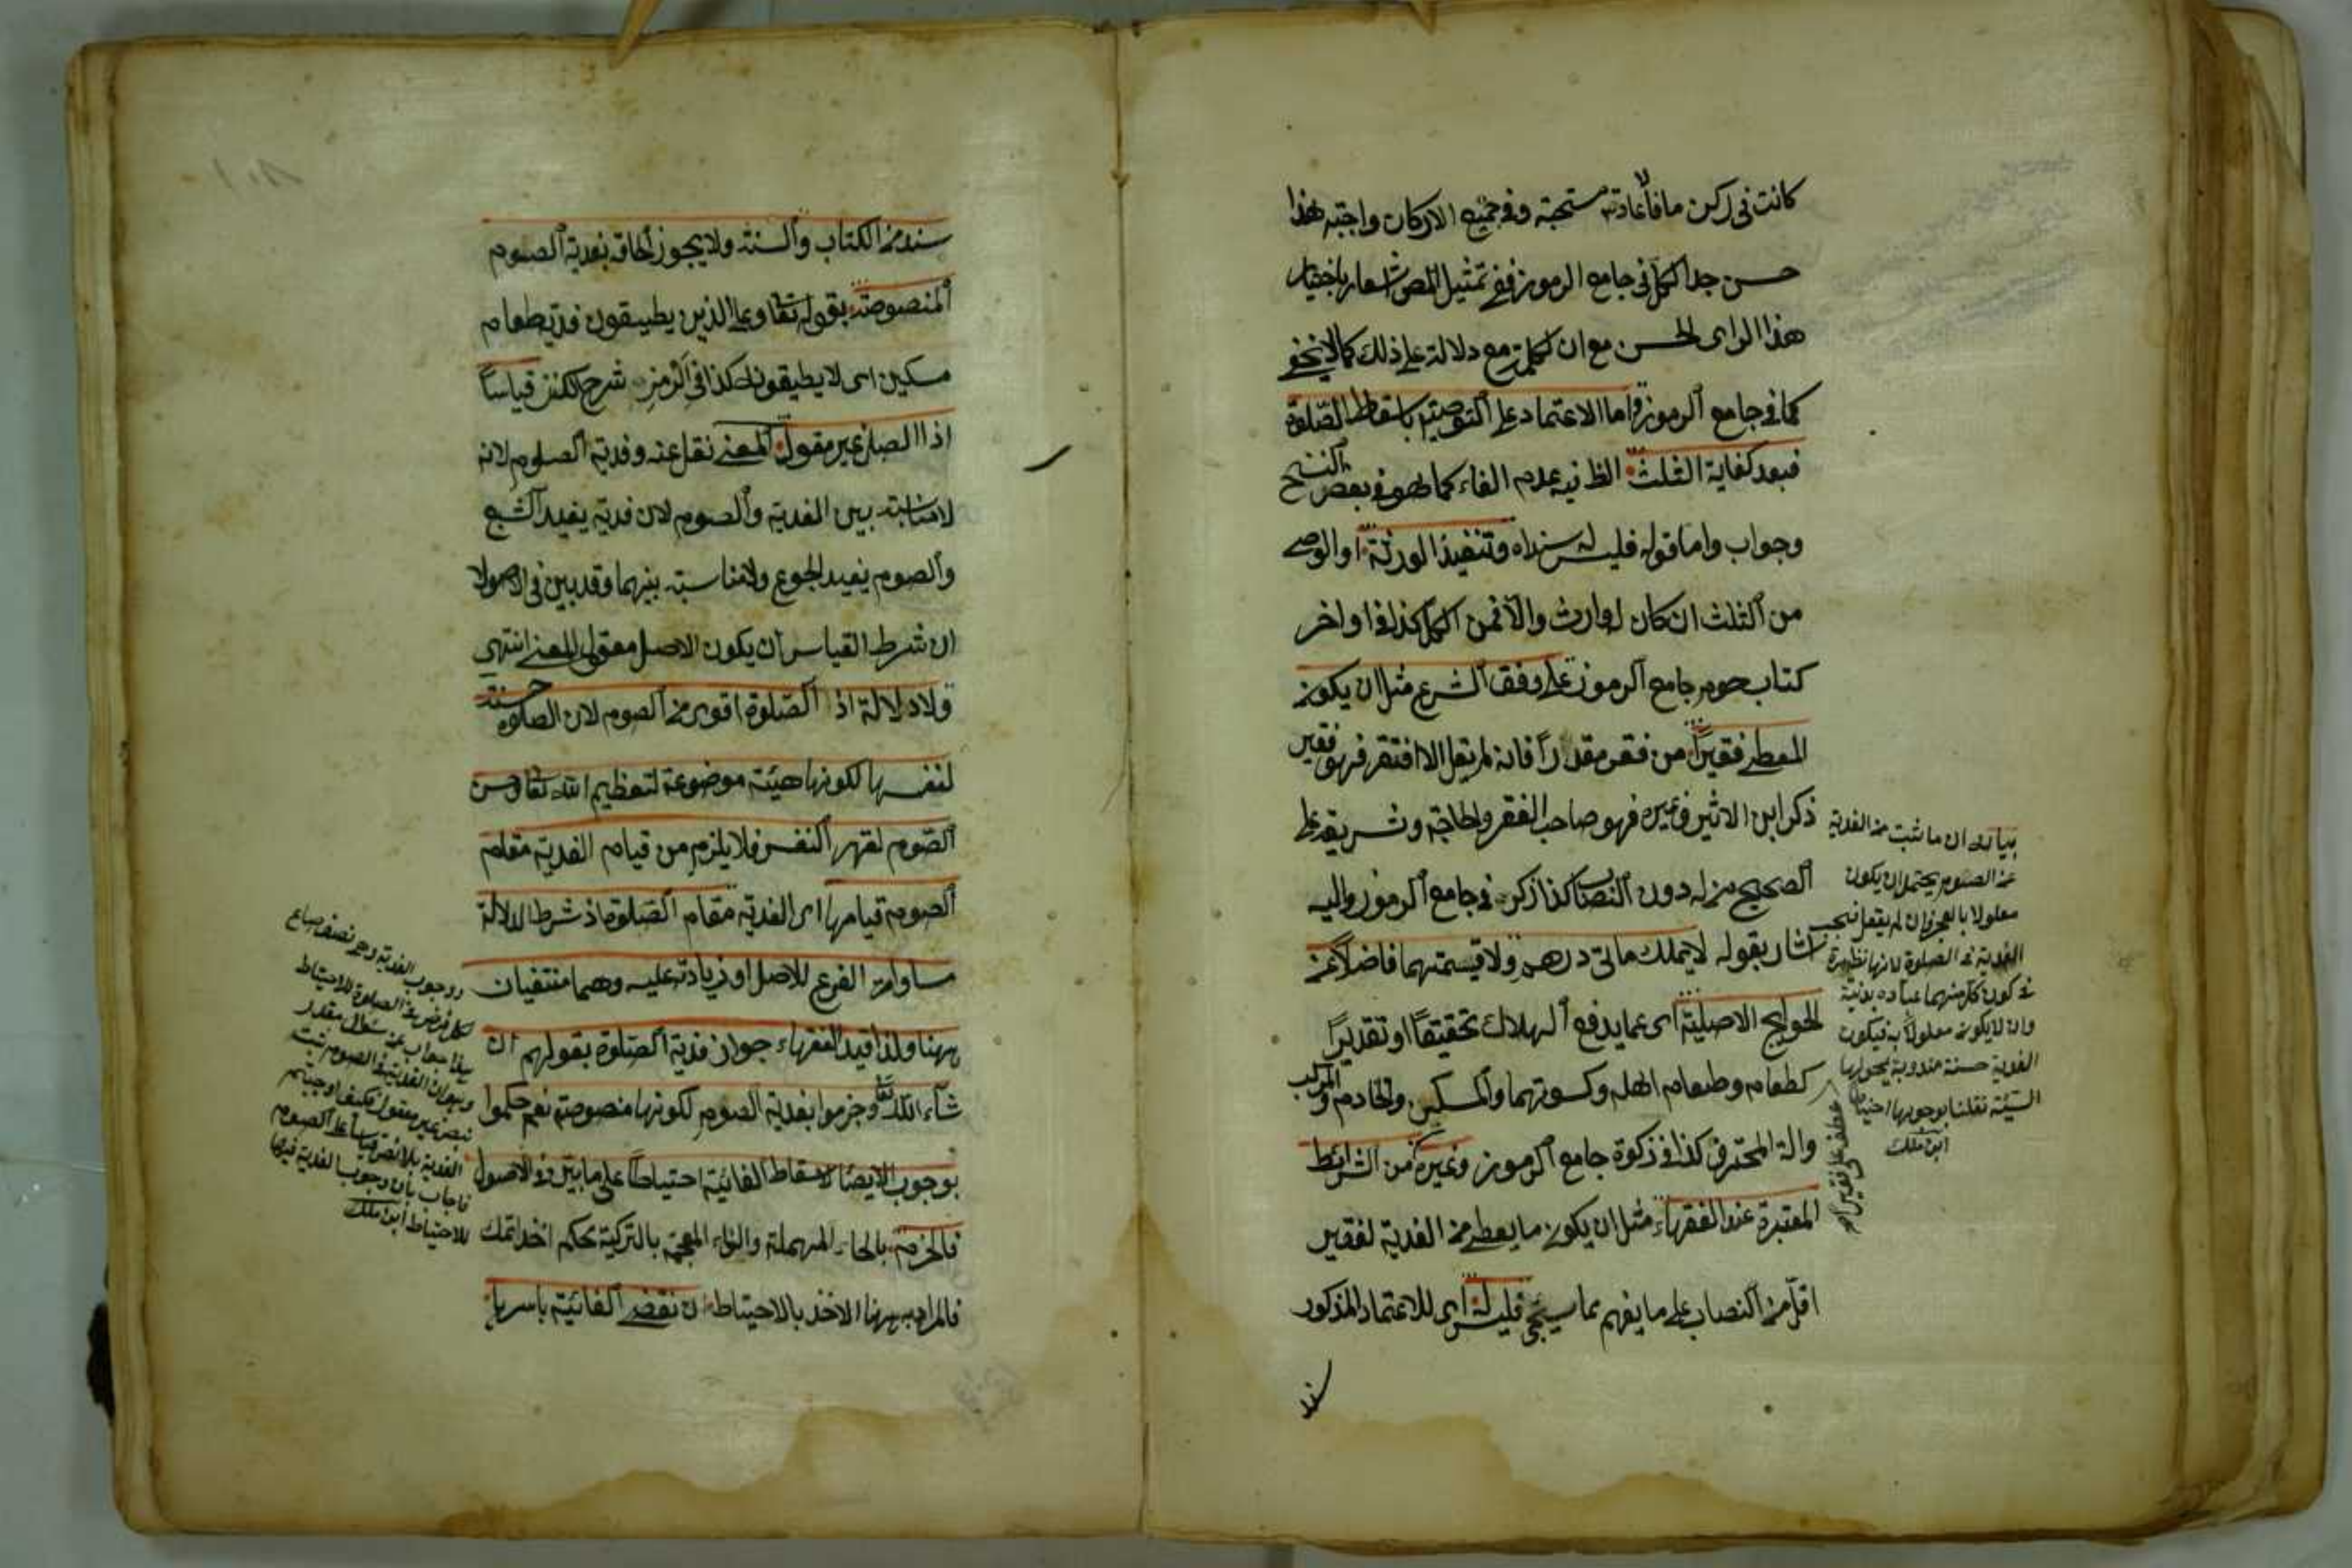 كانت في ركن ما فاعادته مستحبة وفي جميع الاركان واجبة هذا
حسن جدا الكل في جامع الرموز ففي تمثيل المص اشعار باختيار
هذا الراى الحسن مع ان كلمة مع دلالة على ذلك كما لا يخفى
كما في جامع الرموز واما الاعتماد على التوصية باسقاط الصلوة
فبعد كفاية الثلث الظرفية عدم الفاء كما هو في بعض النسخ
وجواب واما قوله فليس له سند اه وتنفيذ الورثة او الوصى
من الثلث ان كان له وارث والا فمن الكل كذا في اواخر
كتاب صوم جامع الرموز على وفق الشرع مثل ان يكون
المعطى فقيرا من فقر مقدرا فانه لم يقل الا افتقر فهو فقير
ذكر ابن الاثير وغيره فهو صاحب الفقر والحاجة وشريعة على
الصحيح من له دون النصاب كذا ذكر في جامع الرموز واليه
اشار بقوله لا يملك مائتى درهم ولا قيمتهما فاضلا عن
الحوايج الاصلية اى عما يدفع الهلاك تحقيقا او تقديرا
كطعامه وطعام اهله وكسوتهما والمسكن والخادم والمركب
والة المحترف كذا في زكوة جامع الرموز وغيره من الشرائط
المعتبرة عند الفقهاء مثل ان يكون ما يعطى من الفدية لفقير
اقل من النصاب على ما يفهم مما سيجئ فليس له اى للاعتماد المذكور
سند
بيانه ان ما ثبت من الفدية
عن الصوم يحتمل ان يكون
معلولا بالعجز وان لم يعقل فيجب
الفدية عن الصلوة لانها نظيرة
في كون كل منهما عبادة بدنية
وان لا يكون معلولا به فيكون
الفدية حسنة مندوبة يمحو بها
السيئة فقلنا بوجوبها احتياطا
ابن ملك
عطف على فقيرا
سند من الكتاب والسنة ولا يجوز الحاقه بفدية الصوم
المنصوصة بقوله تعا وعلى الذين يطيقونه فدية طعام
مسكين اى لا يطيقونه كذا في الرمز شرح الكنز قياسا
اذ الصلى غير معقول المعنى نقل عنه وفدية الصوم لانه
لا مناسبة بين الفدية والصوم لان فدية يفيد الشبع
والصوم يفيد الجوع ولا مناسبة بينهما وقد بين في الاصول
ان شرط القياس ان يكون الاصل معقول المعنى انتهى
ولا دلالة اذ الصلوة اقوى من الصوم لان الصلوة حسنة
لنفسها لكونها هيئة موضوعة لتعظيم الله تعا وحسن
الصوم لقهر النفس فلا يلزم من قيام الفدية مقام
الصوم قيامها اى الفدية مقام الصلوة اذ شرط الدلالة
مساواة الفرع للاصل او زيادته عليه وهما منتفيان
ههنا ولذا قيد الفقهاء جواز فدية الصلوة بقولهم ان
شاء الله تعا وجزموا بفدية الصوم لكونها منصوصة نعم حكموا
بوجوب الايصا لاسقاط الفائتة احتياطا على ما بين في الاصول
فالحزم بالحاء المهملة والزاء المعجمة بالتركية محكم اخذ اتمك
فالمراد ههنا الاخذ بالاحتياط ان نقضى الفائتة باسرها
ووجوب الفدية وهو نصف صاع
لكل فرض عن الصلوة للاحتياط
هذا جواب عن سؤال مقدر
وهو ان الفدية في الصوم ثبت
بنص غير معقول فكيف اوجبتم
الفدية بلا نص قياسا على الصوم
فاجاب بان وجوب الفدية فيها
للاحتياط ابن ملك